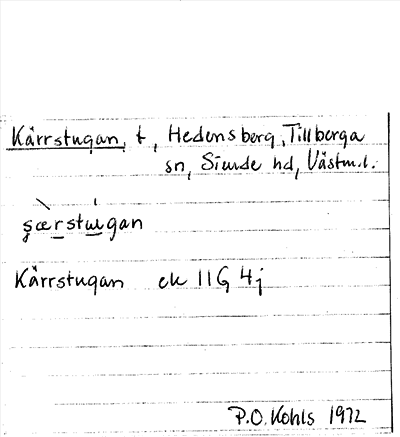 Kärrstugan, t, Hedensberg, Tillberga
sn, Siende hd, Västm.l.
şærstugan
Kärrstugan ek 11G 4j
P.O. Kohls 1972